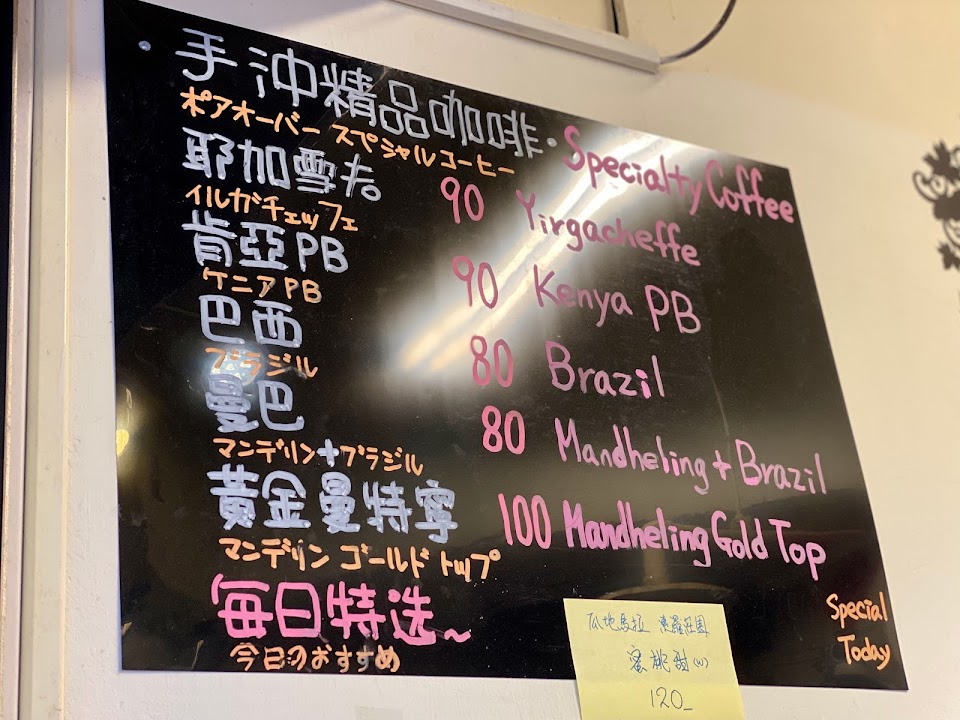 ·手沖精品咖啡· Specialty Coffee
ポアオーバー スペシャルコーヒー
耶加雪夫 90 Yirgacheffe
イルガチェッフェ
肯亞PB 90 Kenya PB
ケニアPB
巴西 80 Brazil
ブラジル
曼巴 80 Mandheling + Brazil
マンデリン+ブラジル
黃金曼特寧 100 Mandheling Gold Top
マンデリン ゴールド トップ
每日特选~ Special Today
今日のおすすめ
瓜地馬拉 莊園
蜜桃甜(W)
120_